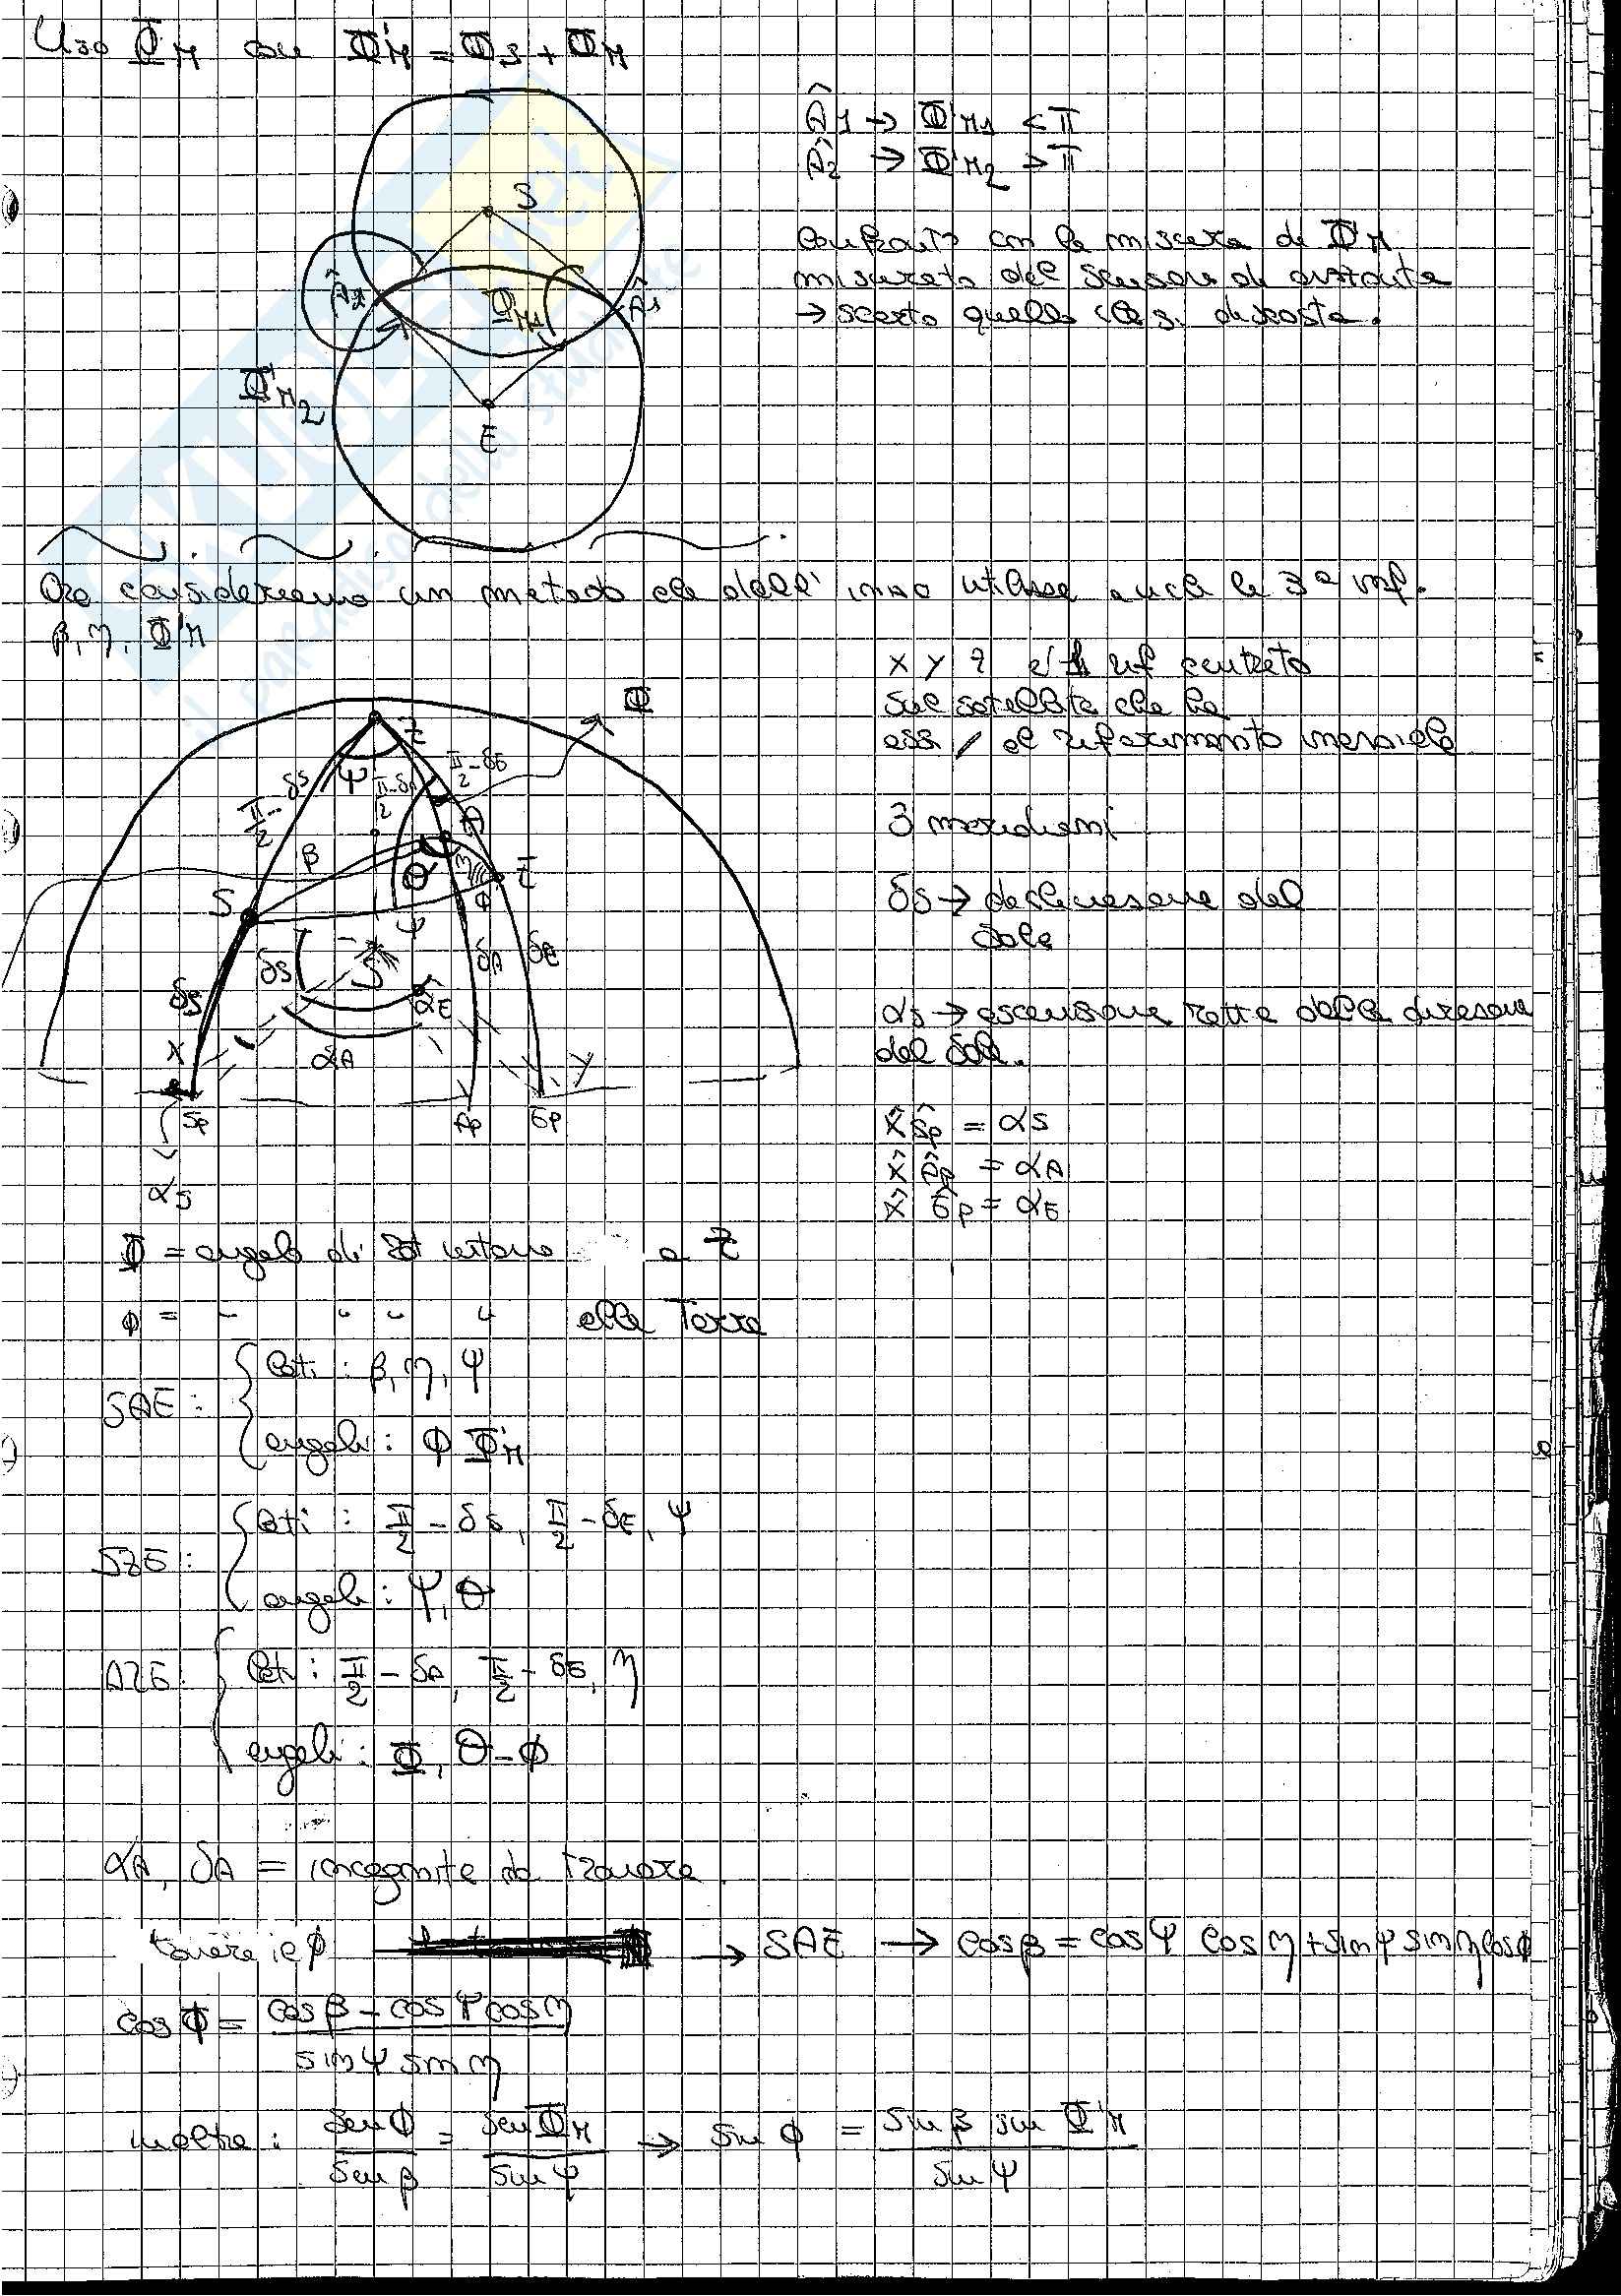 Uso Φ_M con Φ'_M = Φ_S + Φ_M
Â1 → Φ'_M1 < π
Â2 → Φ'_M2 > π
Confronto con la misura di Φ_M
misurato dal sensore di
→ scarto quello che si discosta.
S
Â2
Φ'_M1
Â1
Φ'_M2
E
Ora consideriamo un metodo che dall' inizio utilizza anche la 3ª inf.
β, η, Φ'_M
x y z è 1 rif centrato
sul satellite che ha
assi // al riferimento inerziale
3 meridiani
δs → declinazione del
Sole
αs → ascensione retta della direzione
del Sole.
Φ
z
Ψ
π/2 - δs
π/2 - δA
π/2 - δE
A
β
θ
η
E
S
ψ
φ
δs
δs
δA
δE
αE
αA
x
y
Sp
Ap
Ep
αs
x̂ Ŝp = αs
x̂ Âp = αA
x̂ Êp = αE
Φ = angolo di rot intorno a z
φ = - " " " alla Terra
SAE: { lati: β, η, ψ
angoli: φ Φ'_M
SZE: { lati: π/2 - δs, π/2 - δE, ψ
angoli: Ψ, θ
AZE: { lati: π/2 - δA, π/2 - δE, η
angoli: Φ, θ - φ
αA, δA = incognite da trovare.
φ → SAE → cosβ = cosψ cosη + sinψ sinη cosφ
cos φ = (cosβ - cosψ cosη) / (sinψ sinη)
inoltre: sen φ / sen β = sen Φ'_M / sin ψ → sin φ = sin β sin Φ'_M / sin ψ